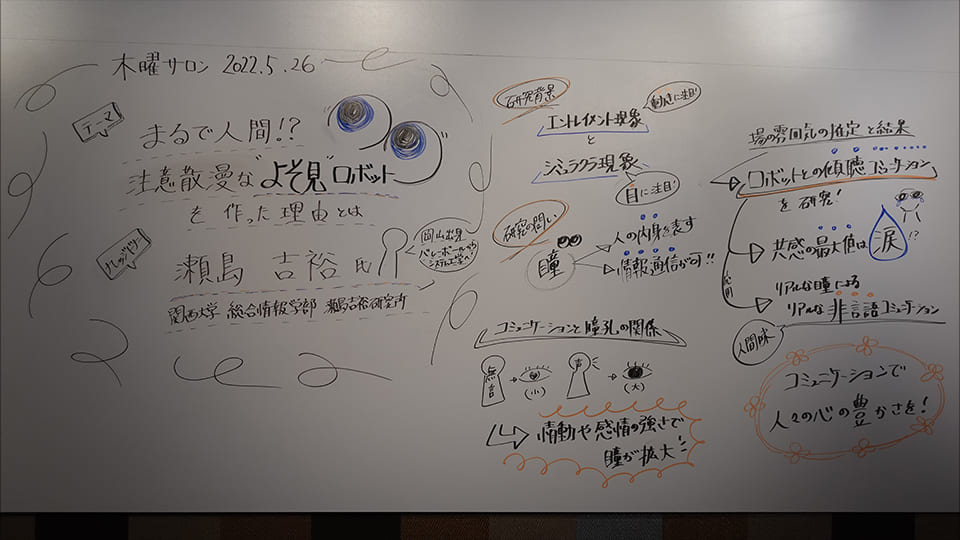 木曜サロン 2022.5.26
テーマ
まるで人間!?
注意散漫な"よそ見"ロボット
を作った理由とは
ナレッジドナー
瀬島 吉裕 氏
岡山出身
バレーボールや
システム工学へ!
関西大学 総合情報学部 瀬島吉裕研究所
研究背景
エントレイメント現象
動きに注目!
と
シミュラクラ現象
目に注目!
研究の問い
瞳
人の内身を表す
情報通信が可!!
コミュニケーションと瞳孔の関係
無言
(小)
声
(大)
情動や感情の強さで
瞳が拡大!
場の雰囲気の推定と結果
ロボットとの傾聴コミュニケーション
を研究!
共感の最大値は
涙
!?
応用
リアルな瞳による
リアルな非言語コミュニケーション
人間味
コミュニケーションで
人々の心の豊かさを!